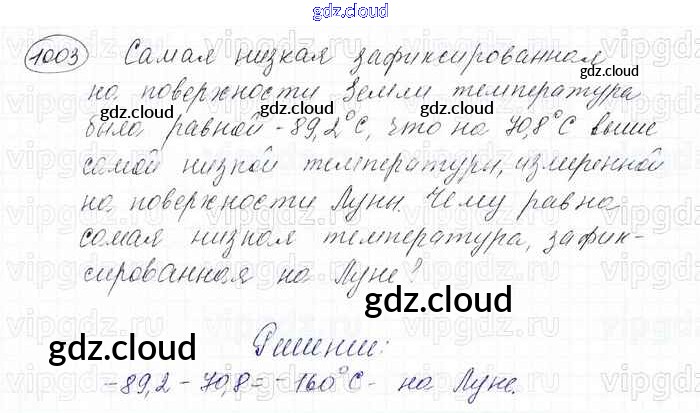 gdz.cloud
1003 Самая низкая зафиксированная
на поверхности Земли температура
была равной -89,2°С, что на 70,8°С выше
самой низкой температуры, измеренной
на поверхности Луны. Чему равна
самая низкая температура, зафик-
сированная на Луне?
Решение:
-89,2 - 70,8 = -160°С - на Луне.
gdz.cloud
gdz.cloud
gdz.cloud
gdz.cloud
gdz.cloud
gdz.cloud
gdz.cloud
gdz.cloud